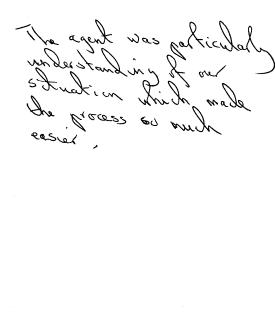 The agent was particularly
understanding of our
situation which made
the process so much
easier.